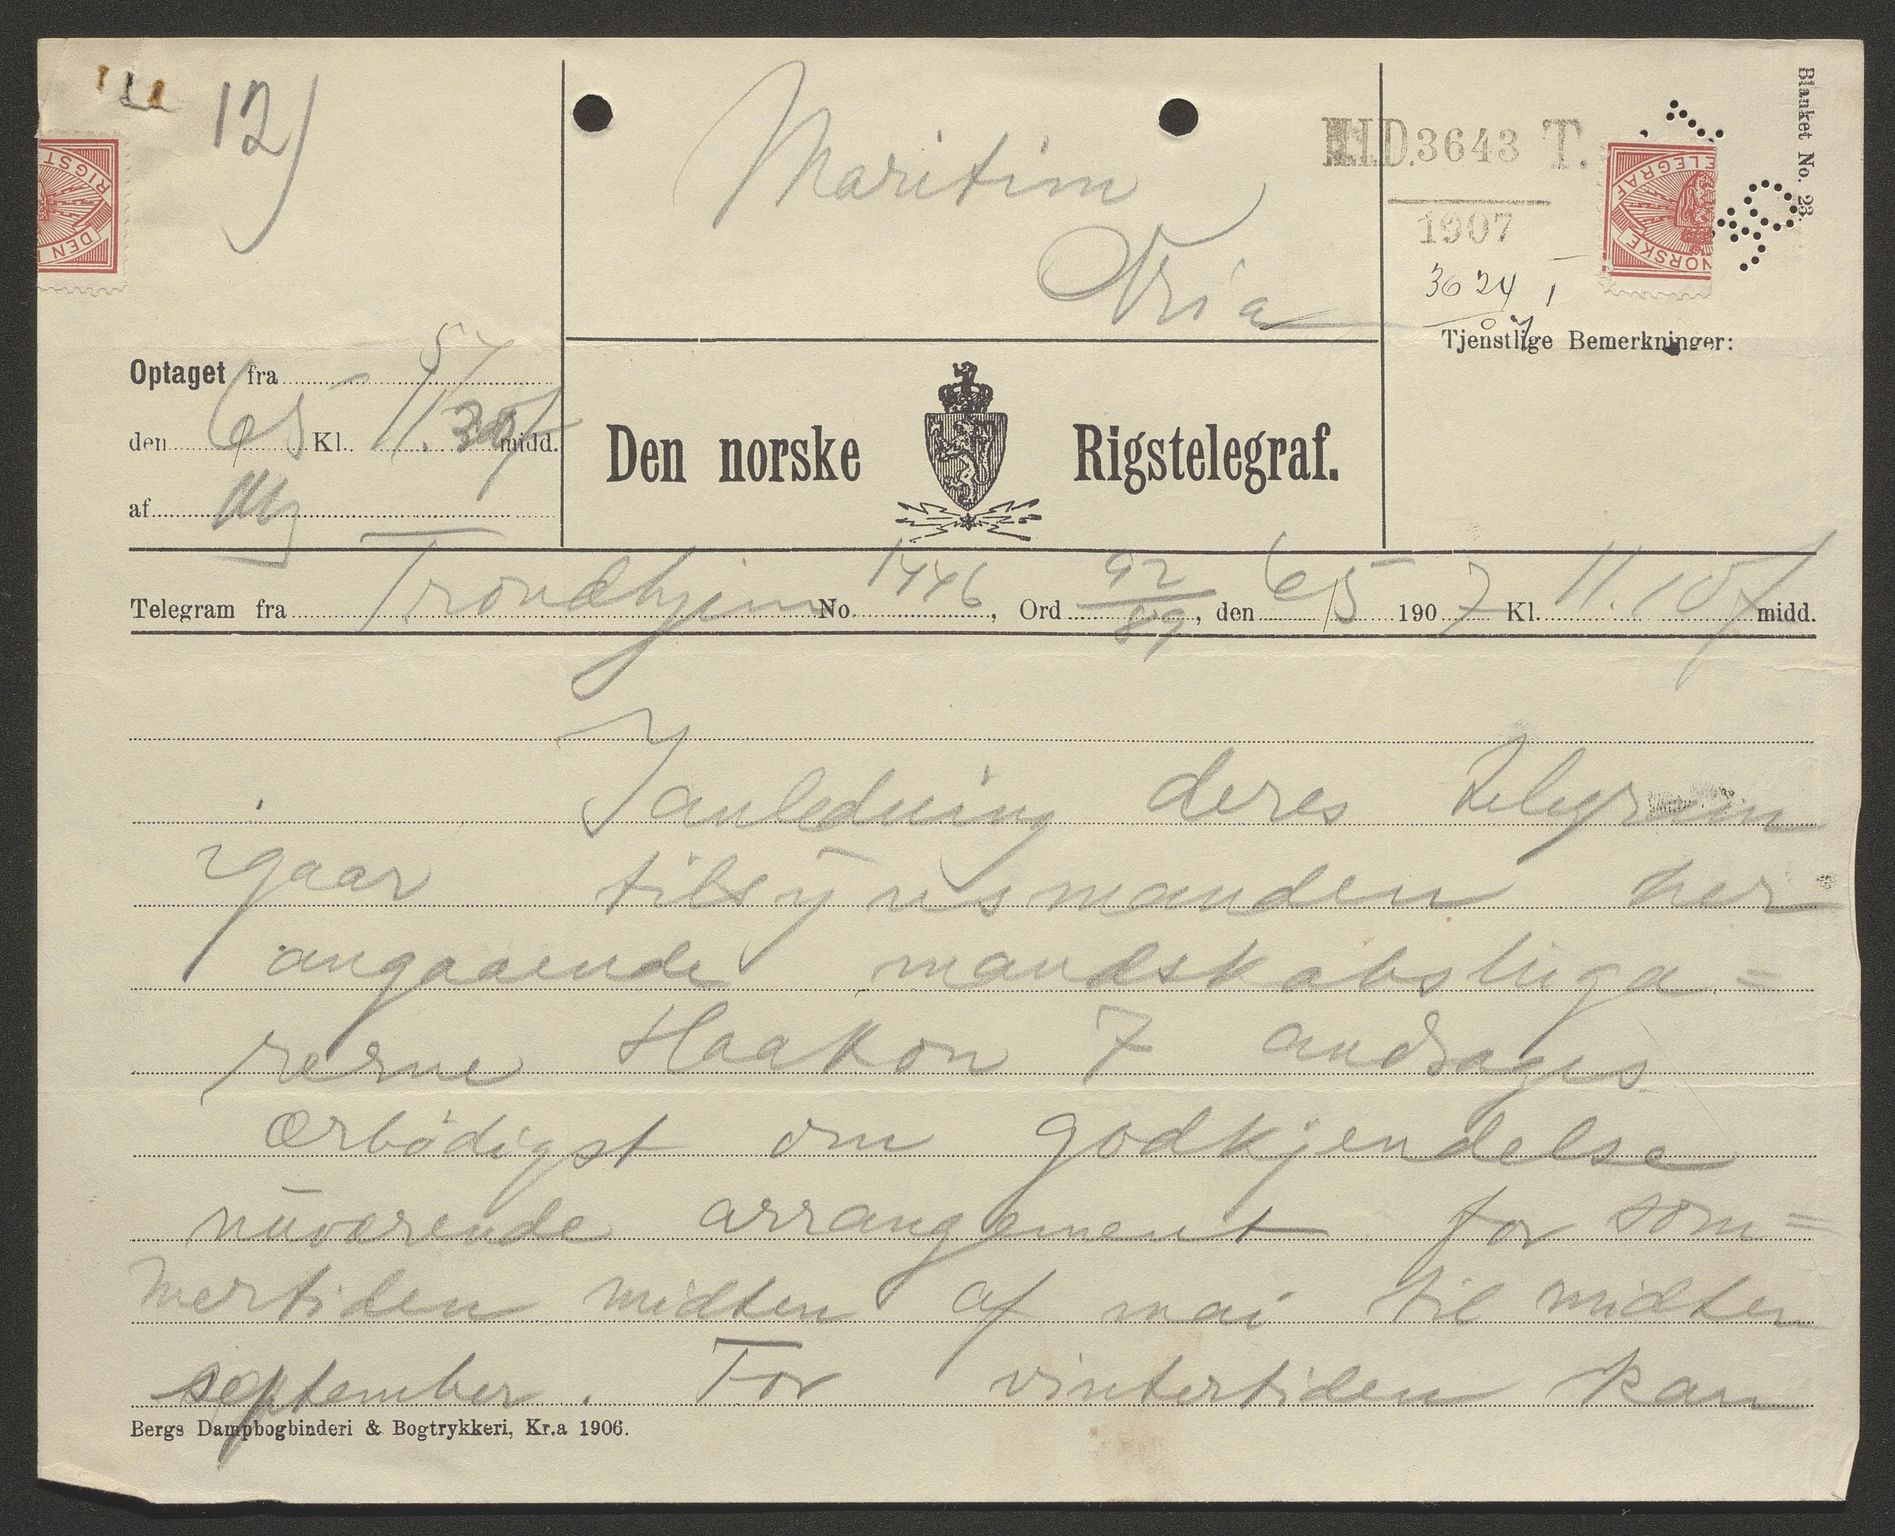 12)
Maritim
Kria
H.I.D. 3643 T.
1907
3624
Blanket No. 23.
DEN
RIGST
NORSKE
TELEGRAF
Tjenstlige Bemerkninger:
Optaget fra
den 6/5 Kl. 11.30 f midd.
af
Den norske Rigstelegraf.
Telegram fra Trondhjem No. 1446, Ord 92/89, den 6/5 1907 Kl. 11.10 f midd.
I anledning deres telegram
igaar tilsynsmanden her
angaaende mandskabsluga=
rerne Haakon 7 andrages
ærbödigst om godkjendelse
nuværende arrangement for som=
mertiden midten af mai til midten
september. For vintertiden kan
Bergs Dampbogbinderi & Bogtrykkeri, Kr.a 1906.